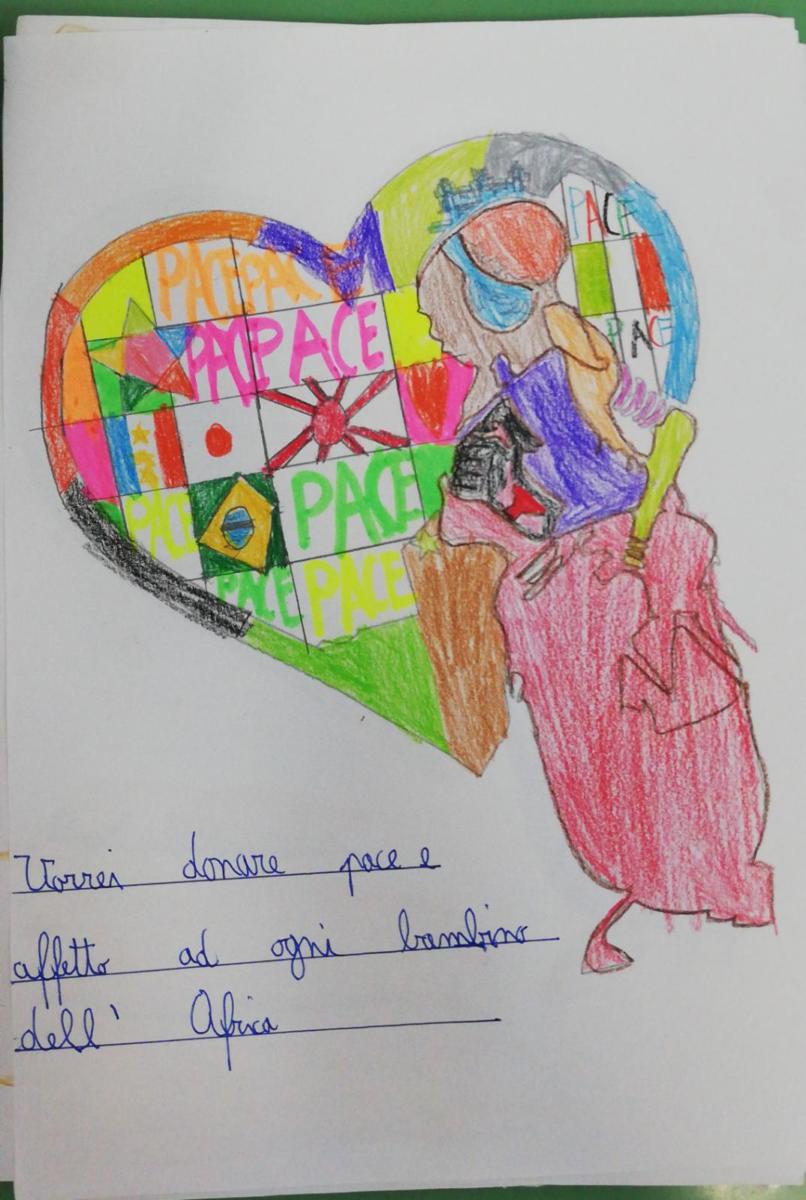 PACE PACE
PACE
PAC PACE
PACE
PACE PACE
PACE PACE
Vorrei donare pace e
affetto ad ogni bambino
dell' Africa